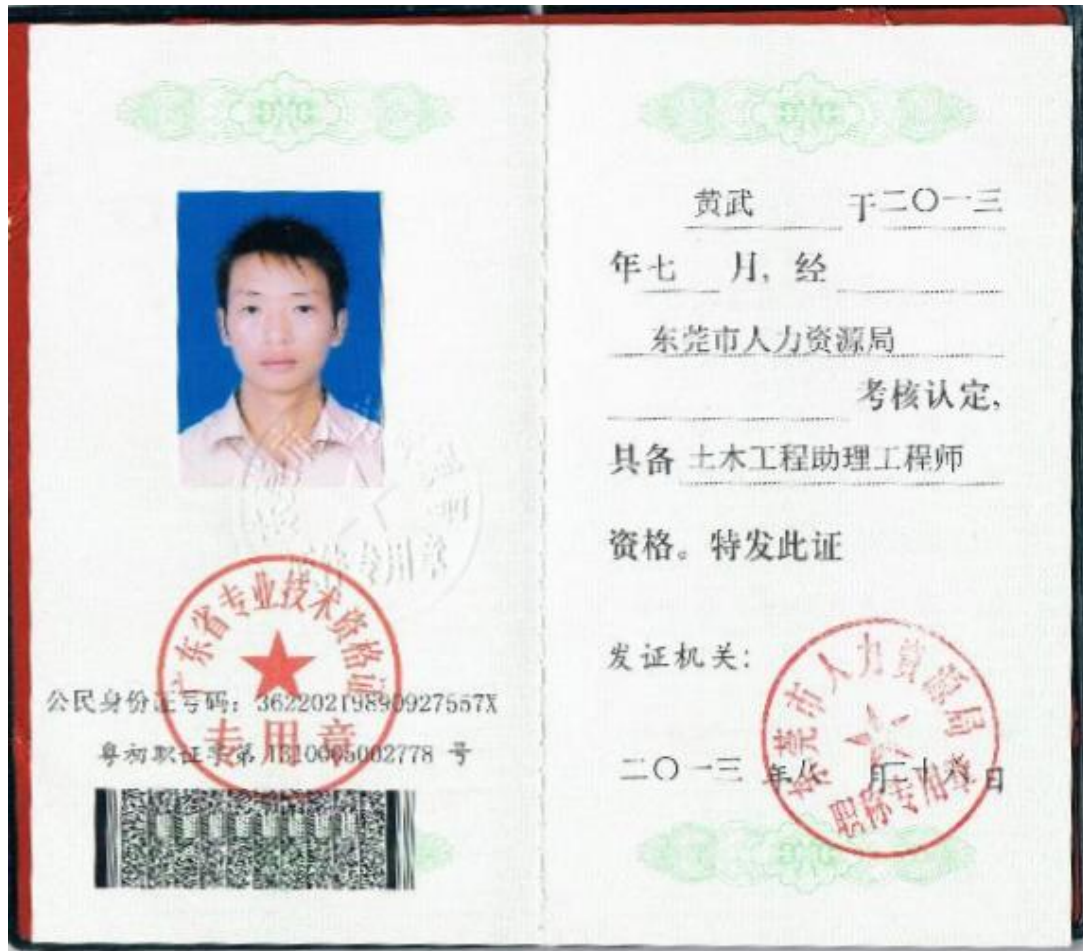 广东省专业技术资格证
专用章
公民身份证号码：36220219890927557X
粤初职证字第 号
黄武 于二〇一三
年七 月，经
东莞市人力资源局
考核认定，
具备 土木工程助理工程师
资格。特发此证
发证机关：
东莞市人力资源局
职称专用章
二〇一三 年八 月 日